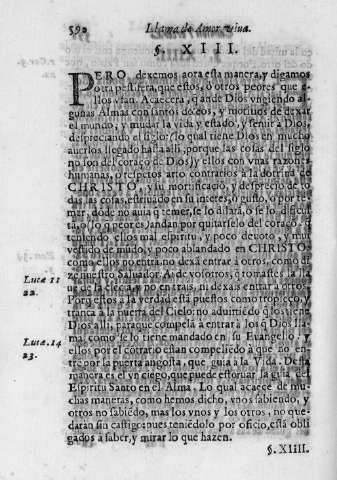 590 Llama de Amor viva.
§. XIII.
PERO dexemos aora esta manera, y digamos
otra pestifera, que estos, o otros peores que e-
llos vsan. Acaecerà, q̃ ande Dios vngiendo al-
gunas Almas con santos deseos, y motiuos de dexar
el mundo, y mudar la vida y estado, y seruir a Dios,
despreciando el siglo: (lo qual tiene Dios en mucho
auerlos llegado hasta alli, porque las cosas del siglo
no son del coraçõ de Dios) y ellos con vnas razones
humanas, o respetos arto contrarios a la dotrina de
CHRISTO, y su mortificaciõ, y desprecio de to
das las cosas, estriuado en su interes, o gusto, o por te
mar, dõde no auia q̃ temer, se lo dilatã, o se lo dificul
tã, o (lo q̃ es peor) andan por quitarselo del coraçõ: q̃
teniendo ellos mal espiritu, y poco deuoto, y muy
vestido de mũdo, y poco ablandado en CHRISTO,
como ellos no entrã, no dexã entrar a otros, como di
ze nuestro Saluador: Ai de vosotros, q̃ tomastes la lla
Lucæ 11 ue de la ciecia, y no entrais, ni dexais entrar a otros.
22. Porq̃ estos a la verdad està puestos como tropieço, y
tranca a la puerta del Cielo: no aduirtiẽdo q̃ los tiene
Dios alli, paraque compelã a entrar a los q̃ Dios lla-
Lucæ. 14 ma, como se lo tiene mandado en su Euangelio, y
23. ellos por el cõtrario estan compeliẽdo a que no en-
tre por la puerta angosta, que guia a la Vida. Desta
manera es el vn ciego, que puede estoruar la guia del
Espiritu Santo en el Alma. Lo qual acaece de mu-
chas maneras, como hemos dicho, vnos sabiendo, y
otros no sabiẽdo, mas los vnos y los otros, no que-
daràn sin castigo: pues teniẽdolo por oficio, està obli
gados a saber, y mirar lo que hazen.
§. XIIII.